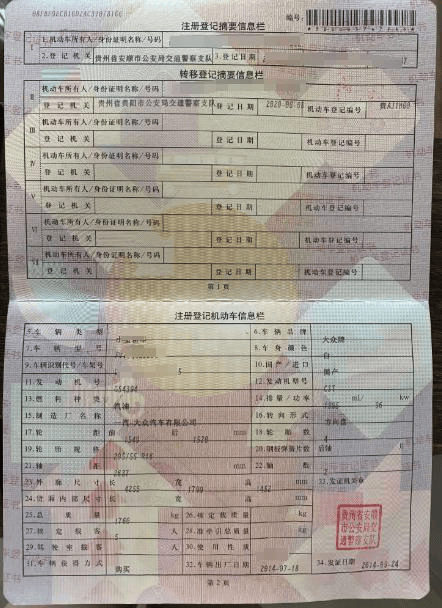 注册登记摘要信息栏
编号:
I 1.机动车所有人/身份证明名称/号码
2.登记机关 贵州省安顺市公安局交通警察支队 3.登记日期
转移登记摘要信息栏
II 机动车所有人/身份证明名称/号码
登记机关 贵州省贵阳市公安局交通警察支队 登记日期 机动车登记编号
III 机动车所有人/身份证明名称/号码
登记机关 登记日期 机动车登记编号
IV 机动车所有人/身份证明名称/号码
登记机关 登记日期 机动车登记编号
V 机动车所有人/身份证明名称/号码
登记机关 登记日期 机动车登记编号
VI 机动车所有人/身份证明名称/号码
登记机关 登记日期 机动车登记编号
VII 机动车所有人/身份证明名称/号码
登记机关 登记日期 机动车登记编号
第1页
注册登记机动车信息栏
5.车辆类型 6.车辆品牌 大众牌
7.车辆型号 8.车身颜色 白
9.车辆识别代号/车架号 5 10.国产/进口 国产
11.发动机号 12.发动机型号 CST
13.燃料种类 汽油 14.排量/功率 ml/ 96 kw
15.制造厂名称 一汽-大众汽车有限公司 16.转向形式 方向盘
17.轮距 前 1549 后 1520 mm 18.轮胎数 4
19.轮胎规格 205/55 R16 20.钢板弹簧片数 后轴
21.轴距 2637 mm 22.轴数 2
23.外廓尺寸 长 4255 宽 1799 高 1452 mm 33.发证机关章
24.货厢内部尺寸 长 宽 高 mm
25.总质量 kg 26.核定载质量 kg
27.核定载客 5 人 28.准牵引总质量 kg
29.驾驶室载客 人 30.使用性质
31.车辆获得方式 购买 32.车辆出厂日期 2014-07-18 34.发证日期
贵州省安顺
市公安局交
通警察支队
第2页